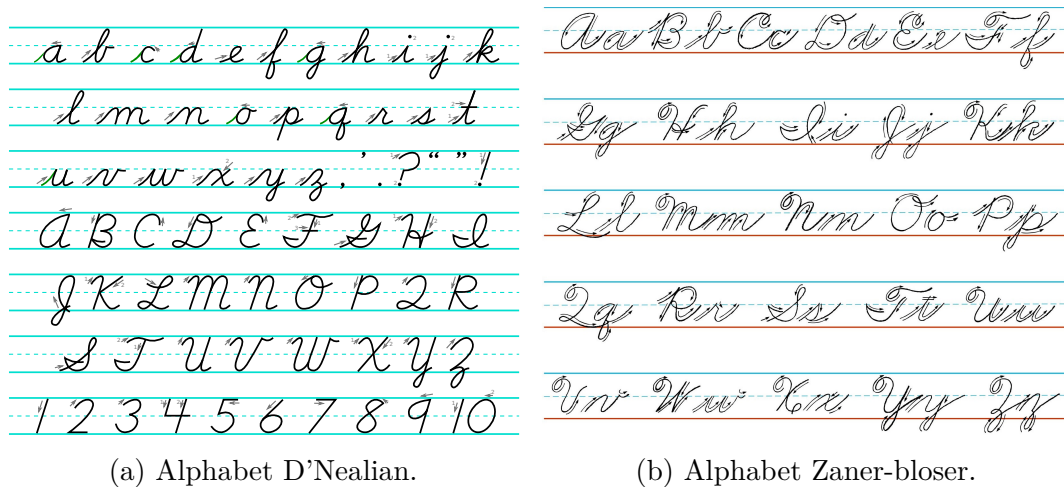 a b c d e f g h i j k
l m n o p q r s t
u v w x y z , ' . ? “ ” !
A B C D E F G H I
J K L M N O P Q R
S T U V W X Y Z
1 2 3 4 5 6 7 8 9 10
(a) Alphabet D'Nealian.
Aa Bb Cc Dd Ee Ff
Gg Hh Ii Jj Kk
Ll Mm Nn Oo Pp
Qq Rr Ss Tt Uu
Vv Ww Xx Yy Zz
(b) Alphabet Zaner-bloser.